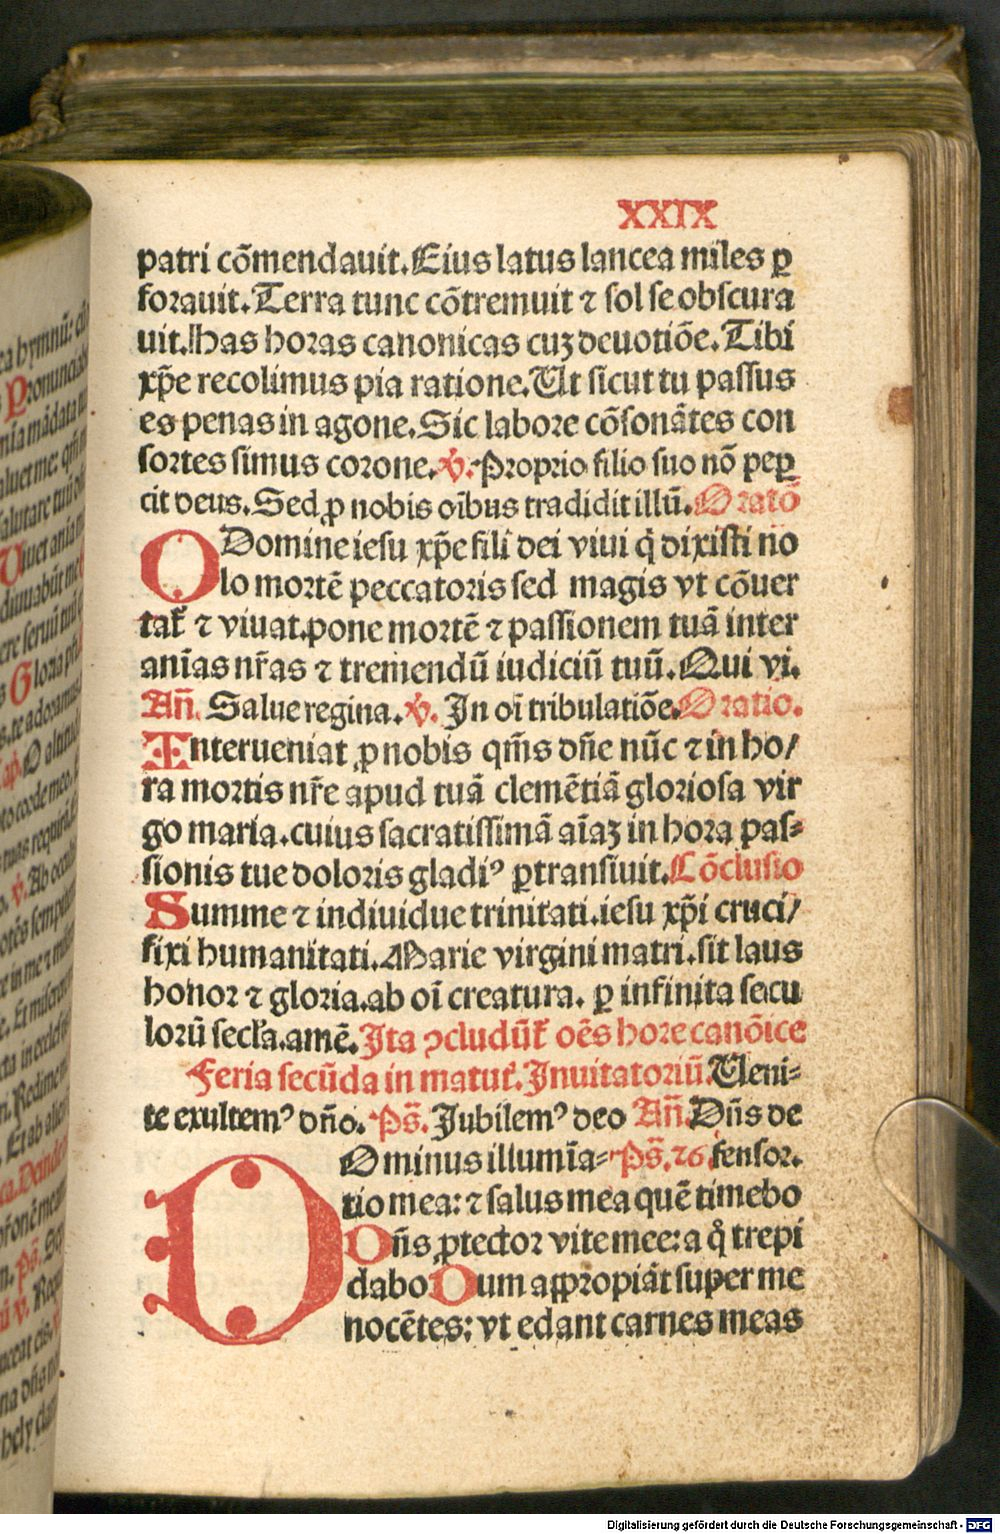 XXIX
patri cōmendauit. Eius latus lancea miles ꝑ
forauit. Terra tunc cōtremuit ⁊ sol se obscura
uit. Has horas canonicas cuꝫ deuotiōe. Tibi
xp̄e recolimus pia ratione. Ut sicut tu passus
es penas in agone. Sic labore cōsonātes con
sortes simus corone. ℣. Proprio filio suo nō peꝑ
cit deus. Sed ꝓ nobis oībus tradidit illū. Oratō
O Domine iesu xp̄e fili dei viui q̇ dixisti no
lo mortē peccatoris sed magis vt cōuer
tat̄ ⁊ viuat. pone mortē ⁊ passionem tuā inter
anīas nr̄as ⁊ tremendū iudiciū tuū. Qui vi.
An̄. Salue regina. ℣. In oī tribulatiōe. Oratio.
Interueniat ꝓ nobis qm̄s dn̄e nūc ⁊ in ho/
ra mortis nr̄e apud tuā clemētiā gloriosa vir
go maria. cuius sacratissimā aīaꝫ in hora pas-
sionis tue doloris gladiꝰ ꝑtransiuit. Cōclusio
Summe ⁊ indiuidue trinitati. iesu xp̄i cruci/
fixi humanitati. Marie virgini matri. sit laus
honor ⁊ gloria. ab oī creatura. ꝑ infinita secu
lorū secl̄a. amē. Ita ꝯcludūt̄ oēs hore canōice
Feria secūda in matut̄. Inuitatoriū. Ueni-
te exultemꝰ dn̄o. Ps̄. Iubilemꝰ deo An̄. Dn̄s de
DOminus illumīa- Ps̄. 26. fensor.
tio mea: ⁊ salus mea quē timebo
Dn̄s ꝓtector vite mee: a q̊ trepi
dabo Dum appropiāt super me
nocētes: vt edant carnes meas
Digitalisierung gefördert durch die Deutsche Forschungsgemeinschaft - DFG